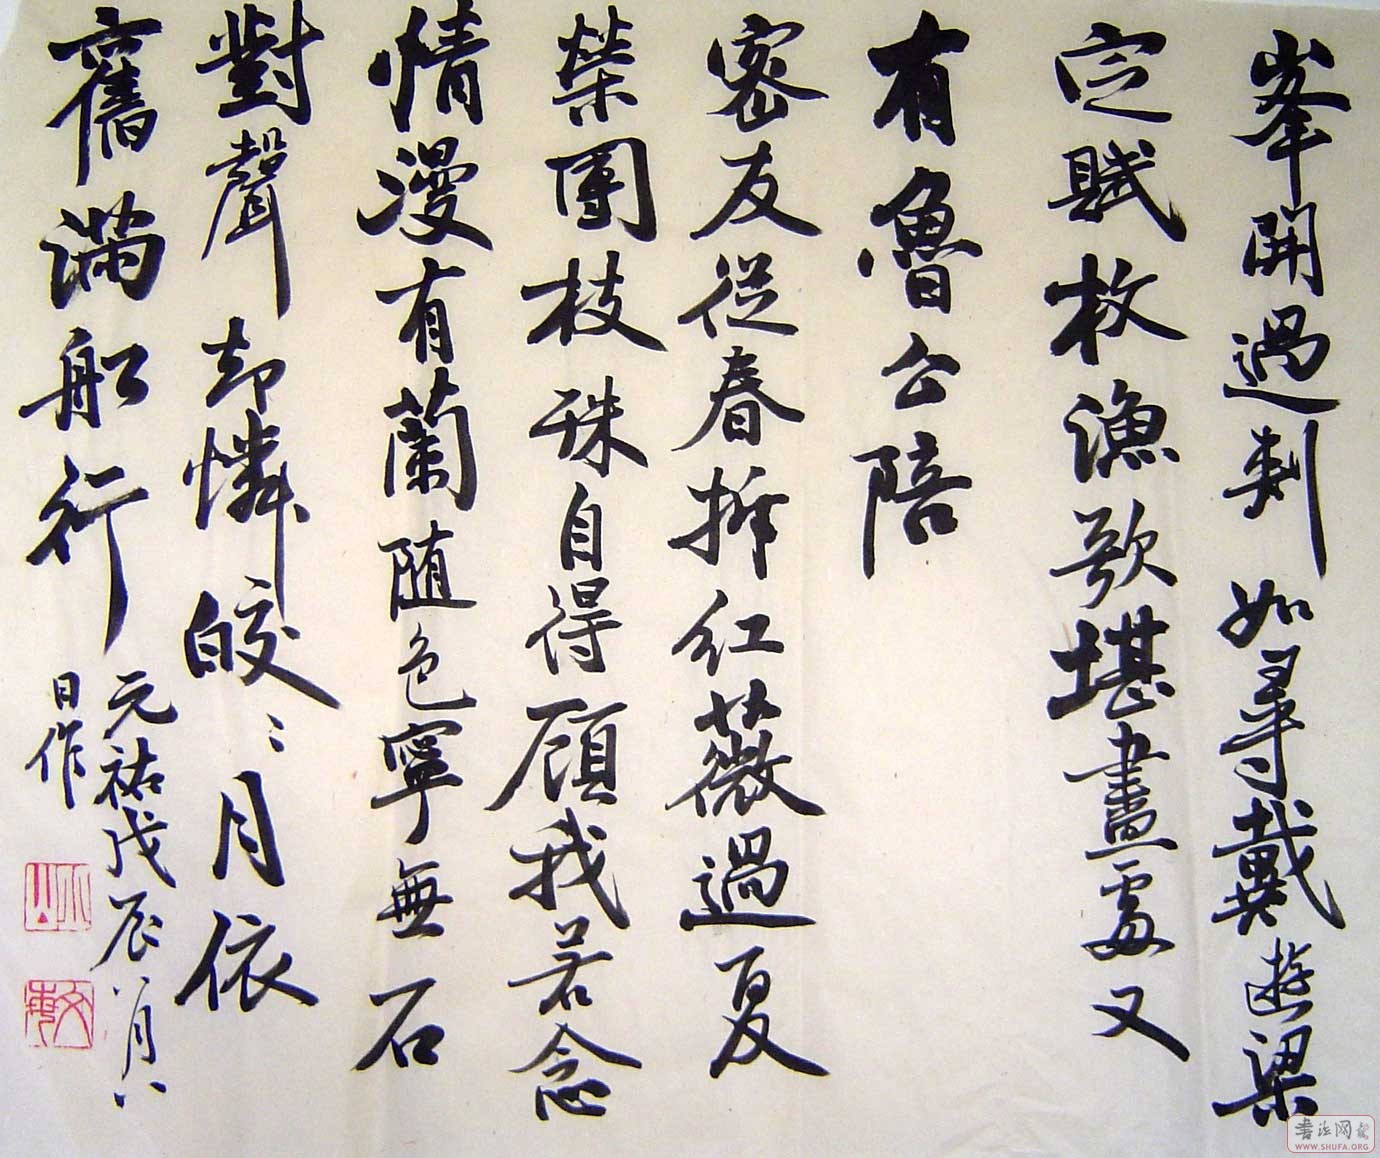 峯開過剡如尋戴遊梁
定賦枚漁歌堪畫處又
有魯公陪
密友從春拆紅薇過夏
榮團枝殊自得顧我若念
情漫有蘭随色寧無石
對聲却憐皎〻月依
舊滿舩行
元祐戊辰八月八
日作
WWW.SHUFA.ORG